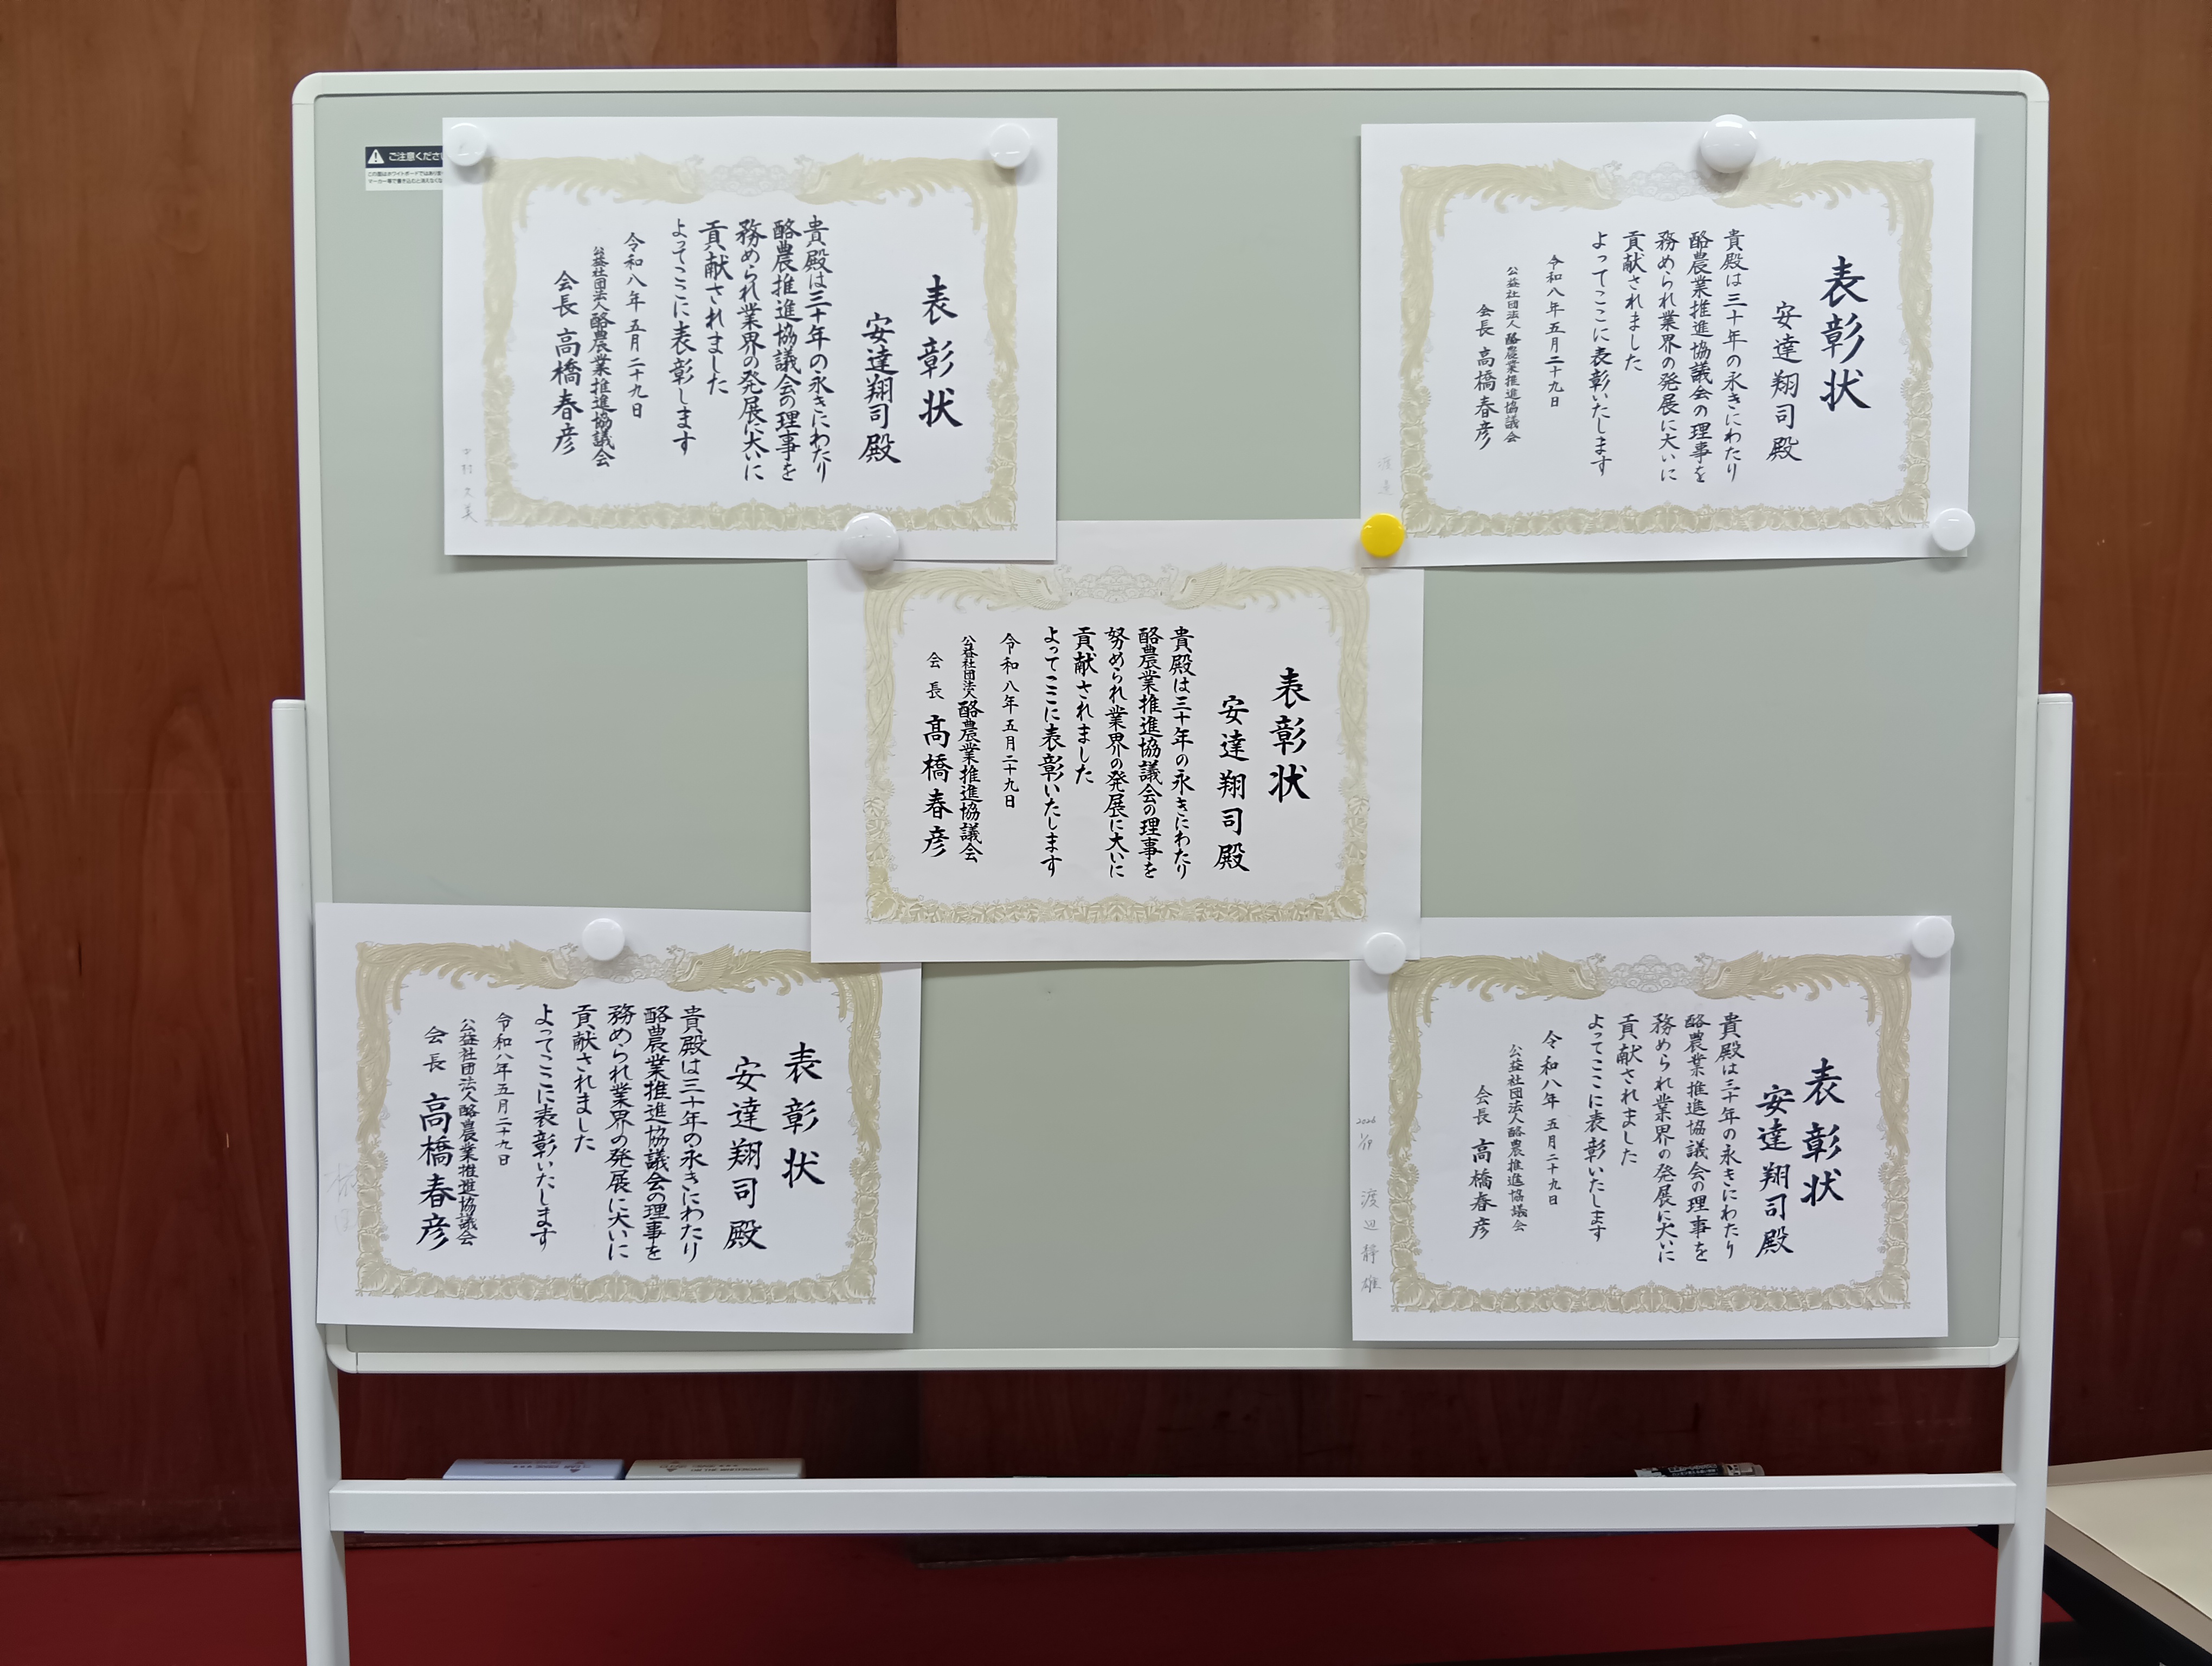 ご注意くださ
表彰状
安達翔司殿
貴殿は三十年の永きにわたり
酪農業推進協議会の理事を
務められ業界の発展に大いに
貢献されました
よってここに表彰します
令和八年五月二十九日
公益社団法人酪農業推進協議会
会長 高橋春彦
表彰状
安達翔司殿
貴殿は三十年の永きにわたり
酪農業推進協議会の理事を
務められ業界の発展に大いに
貢献されました
よってここに表彰いたします
令和八年五月二十九日
公益社団法人酪農業推進協議会
会長 高橋春彦
渡邉
表彰状
安達翔司殿
貴殿は三十年の永きにわたり
酪農業推進協議会の理事を
努められ業界の発展に大いに
貢献されました
よってここに表彰いたします
令和八年五月二十九日
公益社団法人酪農業推進協議会
会長 髙橋春彦
表彰状
安達翔司殿
貴殿は三十年の永きにわたり
酪農業推進協議会の理事を
務められ業界の発展に大いに
貢献されました
よってここに表彰いたします
令和八年五月二十九日
公益社団法人酪農業推進協議会
会長 高橋春彦
表彰状
安達翔司殿
貴殿は三十年の永きにわたり
酪農業推進協議会の理事を
務められ業界の発展に大いに
貢献されました
よってここに表彰いたします
令和八年五月二十九日
公益社団法人酪農推進協議会
会長 高橋春彦
2026 1/19 渡辺靜雄